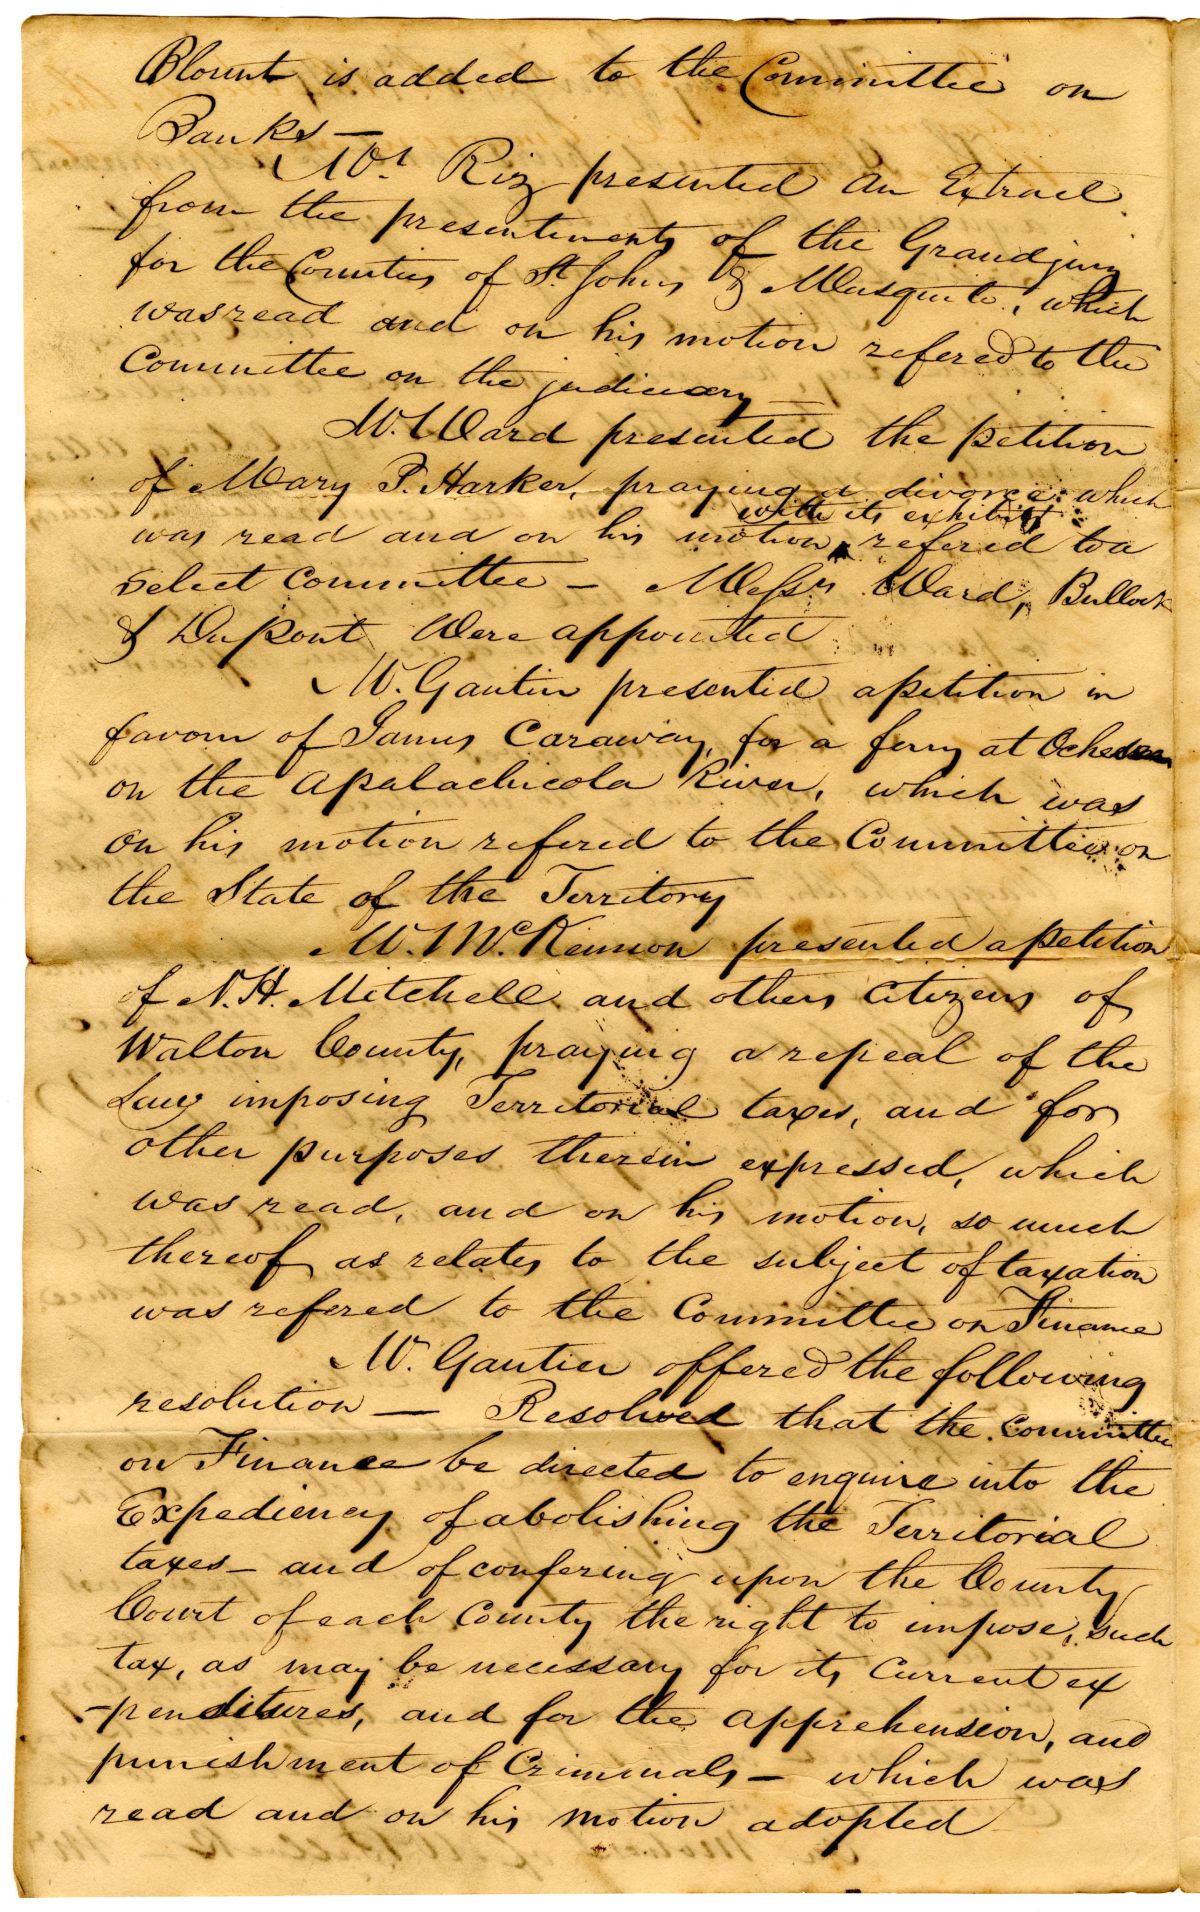 Blount is added to the Committee on
Banks —
Mr. Riz presented an Extract
from the presentments of the Grandjury
for the Counties of St. Johns & Musquito, which
was read and on his motion refered to the
Committee on the judiciary —
Mr. Ward presented the petition
of Mary P. Harker, praying a divorce which
was read and on his motion with its exhibits refered to a
select committee — Messrs Ward, Bullock
& DuPont Were appointed
Mr. Gautier presented a petition in
favour of James Caraway, for a ferry at
on the Apalachicola River, which was
on his motion refered to the Committee on
the State of the Territory
Mr. McKinnon presented a petition
of N. H. Mitchell and others citizens of
Walton County, praying a repeal of the
Law imposing Territorial taxes, and for
other purposes therein expressed, which
was read, and on his motion, so much
thereof as relates to the subject of taxation
was refered to the Committee on Finance
Mr. Gautier offered the following
resolution — Resolved that the committee
on Finance be directed to enquire into the
Expediency of abolishing the Territorial
taxes — and of confering upon the County
Court of each County the right to impose, such
tax, as may be necessary for its current ex
-penditures, and for the apprehension, and
punishment of Criminals — which was
read and on his motion adopted